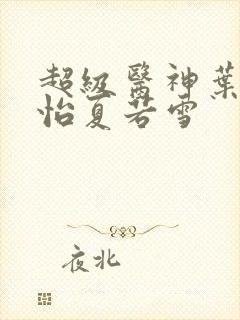 超級醫神葉
怡夏若雪
夜北